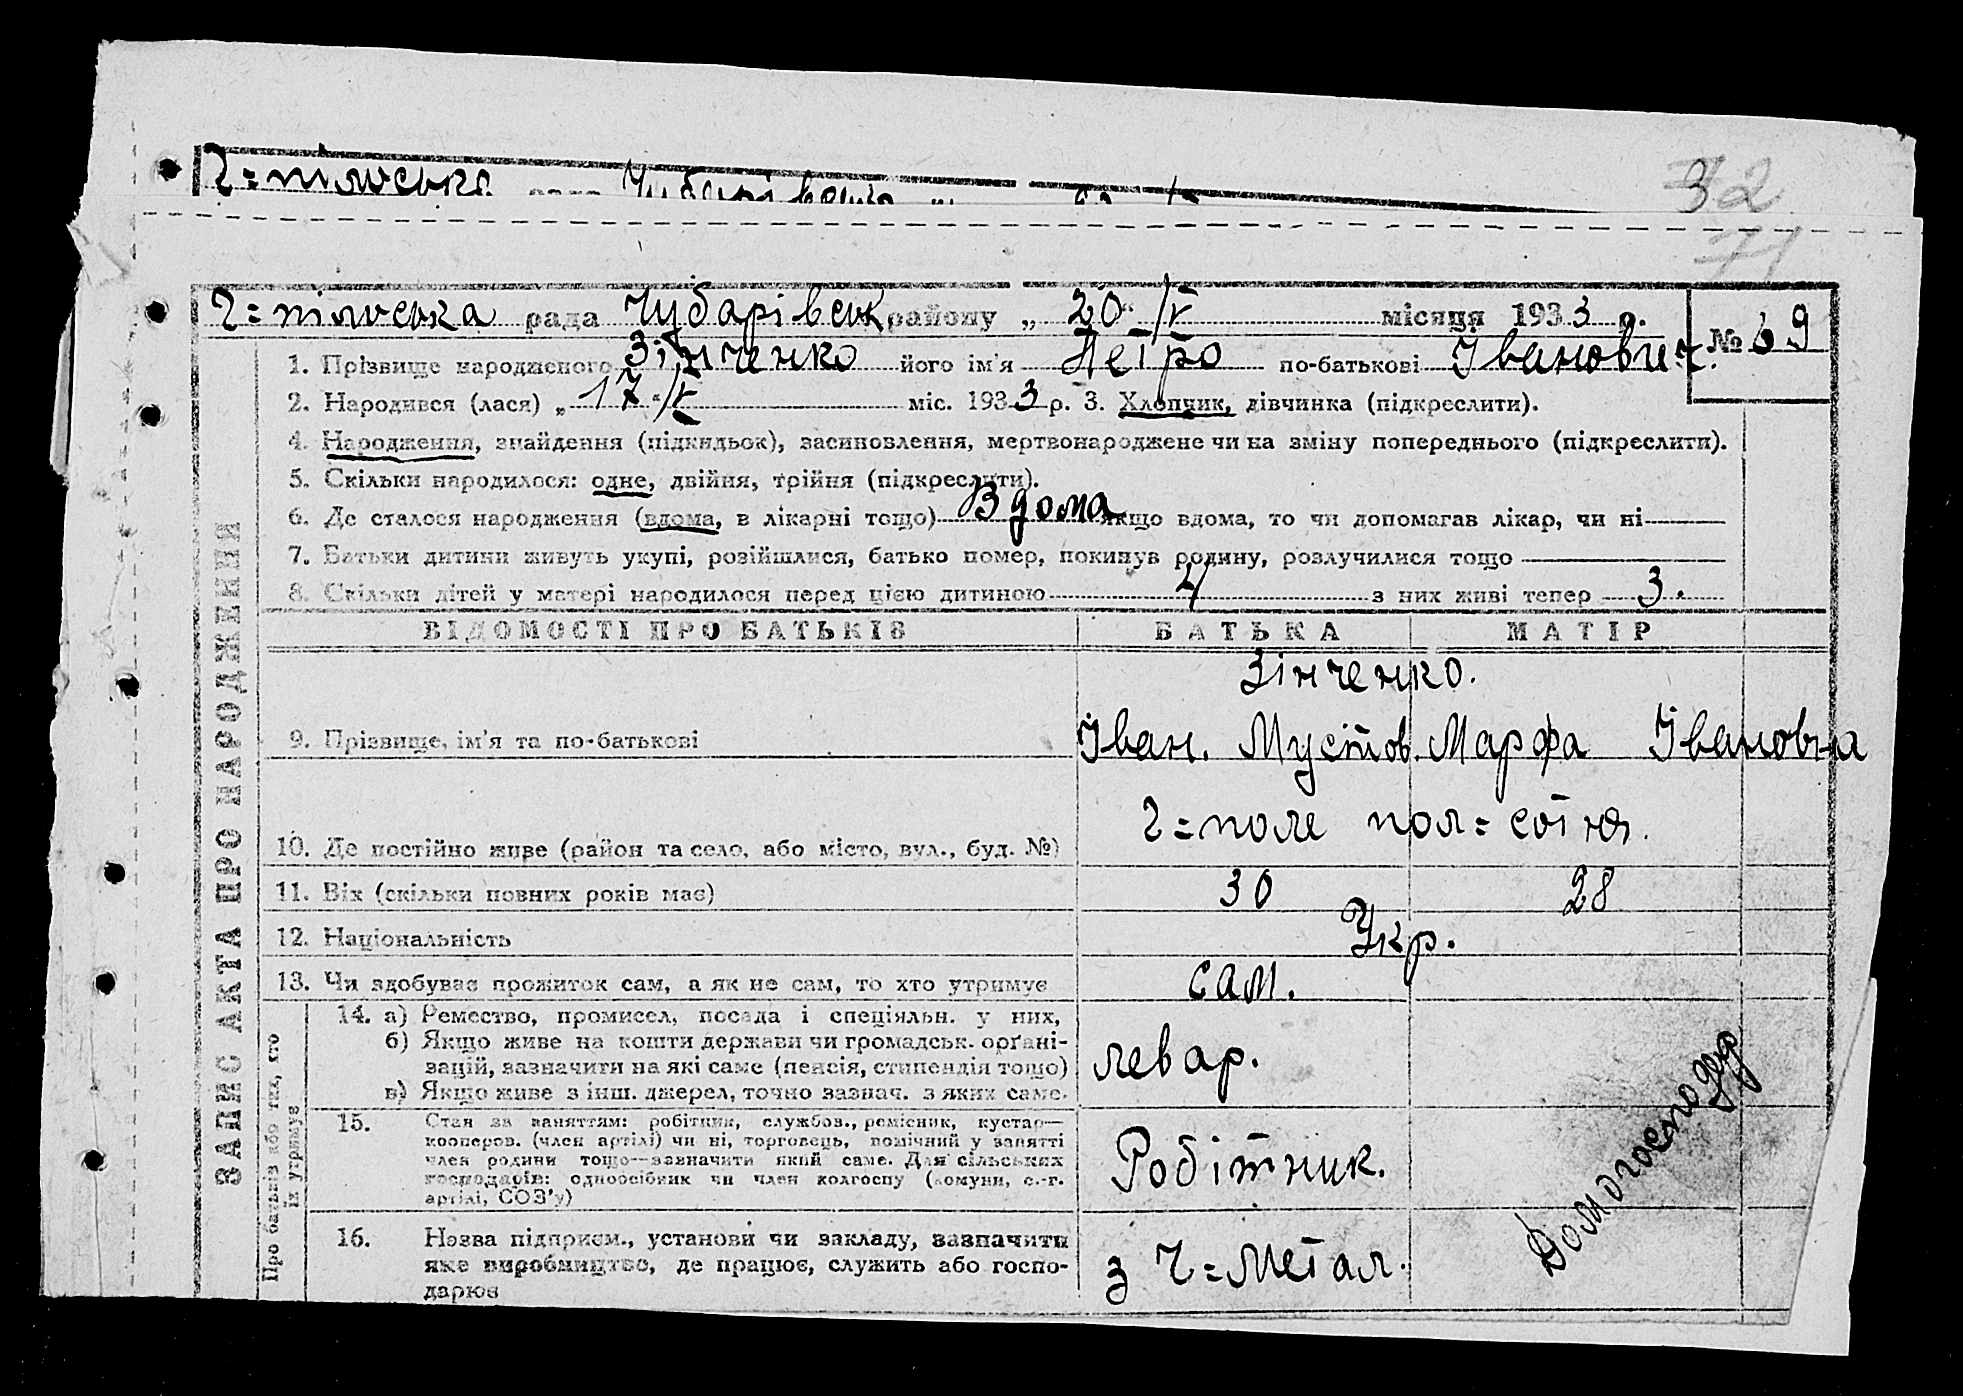 32
71
Г=пільська рада Чубарівськ району „20“ /V місяця 1933 р.
№ 69
1. Прізвище народженого Зінченко його ім'я Петро по-батькові Іванович.
2. Народився (лася) „17“ /V міс. 1933 р. 3. Хлопчик, дівчинка (підкреслити).
4. Народження, знайдення (підкидьок), засиновлення, мертвонароджене чи на зміну попереднього (підкреслити).
5. Скільки народилося: одне, двійня, трійня (підкреслити).
6. Де сталося народження (вдома, в лікарні тощо) Вдома якщо вдома, то чи допомагав лікар, чи ні
7. Батьки дитини живуть укупі, розійшлися, батько помер, покинув родину, розлучилися тощо
8. Скільки дітей у матері народилося перед цією дитиною 4 з них живі тепер 3.
ЗАПИС АКТА ПРО НАРОДЖЕННЯ
ВІДОМОСТІ ПРО БАТЬКІВ БАТЬКА МАТІР
Зінченко.
9. Прізвище, ім'я та по-батькові Іван. Мустов. Марфа Івановна
10. Де постійно живе (район та село, або місто, вул., буд. №) Г=поле пол=сотня.
11. Вік (скільки повних років має) 30 28
12. Національність Укр.
13. Чи здобуває прожиток сам, а як не сам, то хто утримує сам.
Про батьків або тих, хто їх утримує
14. а) Ремество, промисел, посада і спеціяльн. у них,
б) Якщо живе на кошти держави чи громадськ. органі-
зацій, зазначити на які саме (пенсія, стипендія тощо)
в) Якщо живе з інш. джерел, точно зазнач. з яких саме.
левар.
15. Стан за заняттям: робітник, службов., ремісник, кустар—
кооперов. (член артілі) чи ні, торговець, помічний у занятті
член родини тощо—зазначити який саме. Для сільських
господарів: одноосібник чи член колгоспу (комуни, с.-г.
артілі, СОЗ'у)
Робітник.
Домогосподар
16. Назва підприєм., установи чи закладу, зазначити
яке виробництво, де працює, служить або госпо-
дарює
з Г=Метал.